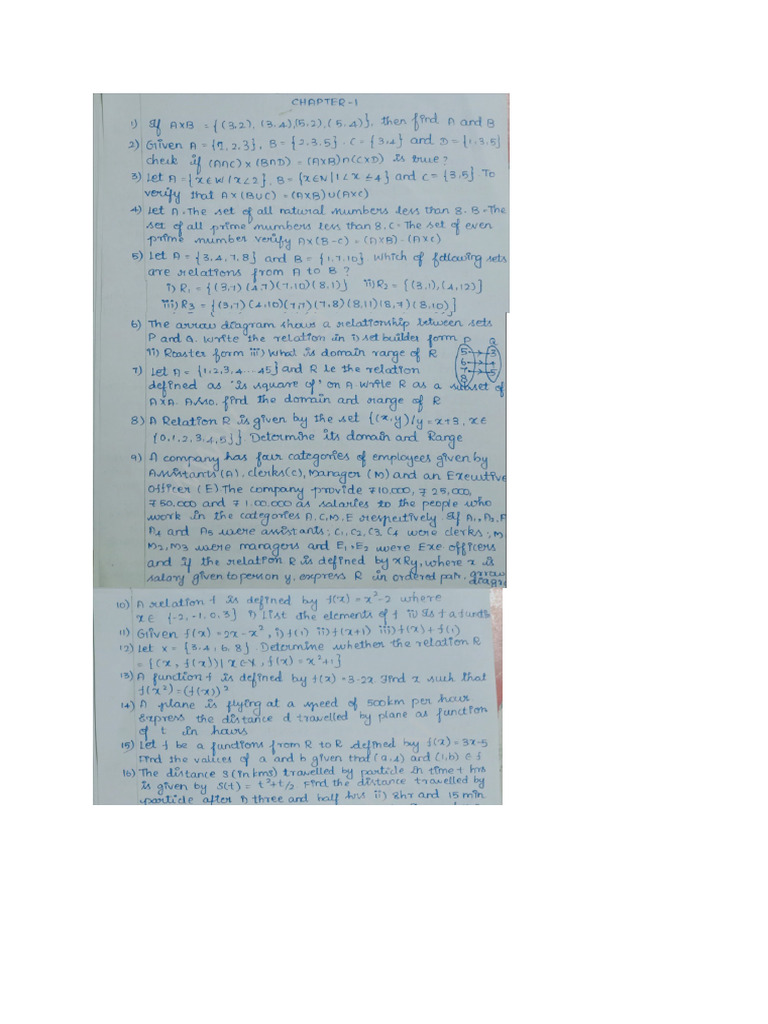 CHAPTER-1
1) If A×B = {(3,2), (3,4),(5,2),(5,4)}, then find A and B
2) Given A = {1,2,3}, B = {2,3,5}. C = {3,4} and D = {1,3,5}
check if (A∩C) × (B∩D) = (A×B)∩(C×D) is true?
3) Let A = {x∈W/x<2}, B = {x∈N|1<x≤4} and C = {3,5}. To
verify that A×(B∪C) = (A×B)∪(A×C)
4) Let A = The set of all natural numbers less than 8. B = The
set of all prime numbers less than 8. C = The set of even
prime number verify A×(B-C) = (A×B)-(A×C)
5) Let A = {3,4,7,8} and B = {1,7,10} which of following sets
are relations from A to B?
i) R1 = {(3,7)(4,7)(7,10)(8,1)} ii) R2 = {(3,1),(4,12)}
iii) R3 = {(3,7)(4,10)(7,7)(7,8)(8,11)(8,7)(8,10)}
6) The arrow diagram shows a relationship between sets
P and Q. Write the relation in i) set builder form P Q
ii) Roaster form iii) What is domain range of R 5 3
6 4
7 5
8
7) Let A = {1,2,3,4...45} and R be the relation
defined as 'is square of' on A write R as a subset of
A×A. Also, find the domain and range of R
8) A Relation R is given by the set {(x,y)/y = x+3, x∈
{0,1,2,3,4,5}}. Determine its domain and Range
9) A company has four categories of employees given by
Assistants (A), clerks (C), Manager (M) and an Executive
Officer (E) The company provide ₹10,000, ₹25,000,
₹50,000 and ₹1,00,000 as salaries to the people who
work in the categories A, C, M, E respectively. If A1, A2, A
A4 and A5 were assistants; C1, C2, C3, C4 were clerks; M
M2, M3 were managers and E1, E2 were Exe officers
and if the relation R is defined by xRy, where x is
salary given to person y, express R in ordered pair, arrow
diagr
10) A relation f is defined by f(x) = x²-2 where
x∈ {-2,-1,0,3} i) List the elements of f ii) Is f a functi
11) Given f(x) = 2x-x², i) f(1) ii) f(x+1) iii) f(x)+f(1)
12) Let x = {3,4,6,8}. Determine whether the relation R
= {(x, f(x))| x∈X, f(x) = x²+1}
13) A function f is defined by f(x) = 3-2x Find x such that
f(x²) = (f(x))²
14) A plane is flying at a speed of 500km per hour
Express the distance d travelled by plane as function
of t in hours
15) Let f be a functions from R to R defined by f(x) = 3x-5
Find the values of a and b given that (a,4) and (1,b) ∈ f
16) The distance S (in kms) travelled by particle in time t hrs
is given by S(t) = t²+t/2 Find the distance travelled by
particle after i) three and half hrs ii) 8hr and 15 min